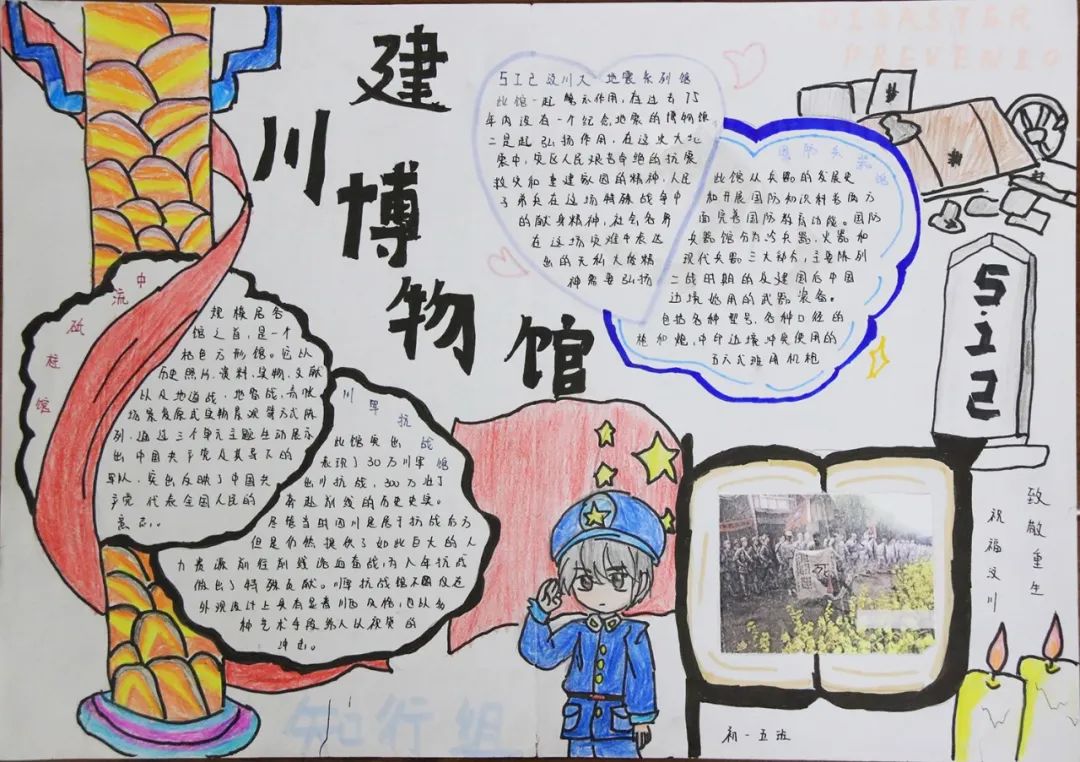 建川博物馆
DISASTER
PREVENIO
512汶川大地震系列馆
此馆一起警示作用,在过去75
年内没有一个纪念地震的博物馆
二是起弘扬作用,在这史大地
震中,灾区人民艰苦卓绝的抗震
救灾和重建家园的精神,人民
子弟兵在这场特殊战争中
的献身精神,社会各界
在这场灾难中表达
出的无私大爱精
神需要弘扬
国防兵器馆
此馆从兵器的发展史
和开展国防知识科普两方
面完善国防教育功能。国防
兵器馆分为冷兵器,火器和
现代兵器三大部分,主要陈列
二战时期的及建国后中国
边境她用的武器装备。
包括各种型号,各种口径的
枪和炮,中印边境冲突使用的
五六式班用机枪
中流砥柱馆
规模居各
馆之首,是一个
棕色方形馆。它以
历史照片,资料,实物,文献
以及地道战,地雷战,
场景复原式实物景观等方式陈
列,通过三个单元主题生动展示
出中国共产党及其领下的
导队,突出反映了中国共
产党代表全国人民的
意志。
川军抗战馆
此馆突出
表现了30万川军
出川抗战,300万壮丁
奔赴前线的历史史实。
尽管当时四川是属于抗战后方
但是仍然提供了如此巨大的人
力资源前往前线流血奋战,为八年抗战
做出了特殊贡献。川军抗战馆不仅仅
外观设计上具有显著川西风格,也以多
种艺术手段予人以视觉的
冲击。
5.12
致敬重生
祝福汶川
知行组
初一五班